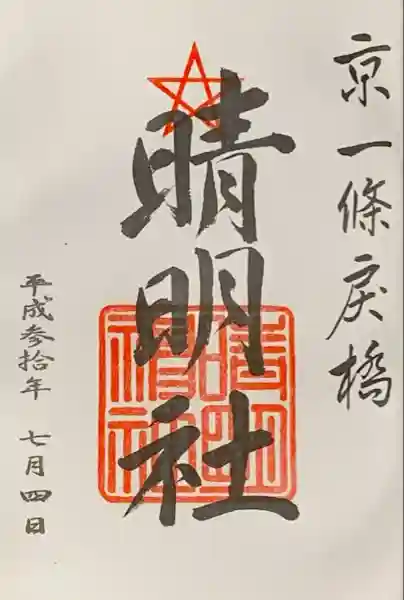 京一條戻橋
晴明社
晴明神社
平成参拾年 七月四日